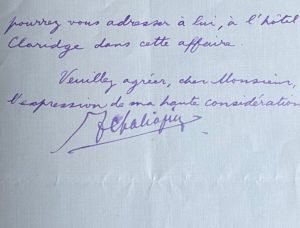 pourrez vous adresser à lui, à l'hôtel
Claridge dans cette affaire.
Veuillez agréer, cher Monsieur,
l'expression de ma haute considération
FChaliapin